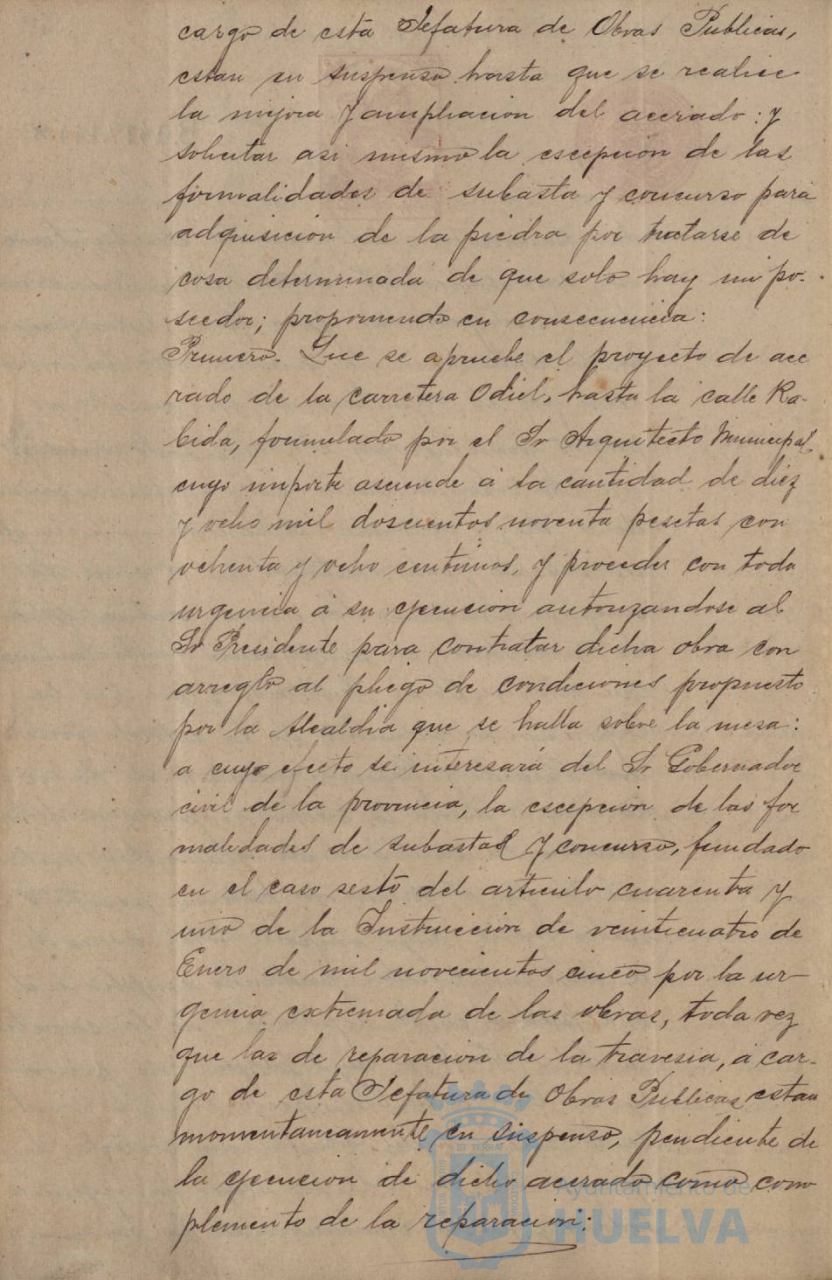 cargo de esta Jefatura de Obras Publicas,
estan en suspenso hasta que se realice
la mejora y ampliacion del acerado: y
solicitar asi mismo la escepcion de las
formalidades de subasta y concurso para
adquisición de la piedra por tratarse de
cosa determinada de que solo hay un po-
seedor; proponiendo en consecuencia:
Primero. Que se apruebe el proyecto de ace
rado de la carretera Odiel, hasta la calle Ra-
bida, formulado por el Sr Arquitecto Municipal
cuyo importe asciende á la cantidad de diez
y ocho mil doscientos noventa pesetas con
ochenta y ocho centimos, y proceder con toda
urgencia á su ejecucion autorizandose al
Sr Presidente para contratar dicha obra con
arreglo al pliego de condiciones propuesto
por la Alcaldia que se halla sobre la mesa:
a cuyo efecto se interesará del Sr Gobernador
civil de la provincia, la escepcion de las for
malidades de subastas y concurso, fundado
en el caso sesto del articulo cuarenta y
uno de la Instrucción de veinticuatro de
Enero de mil novecientos cinco por la ur-
gencia extremada de las obras, toda vez
que las de reparacion de la travesia, á car-
go de esta Jefatura de Obras Publicas estan
momentaneamente en suspenso, pendiente de
la ejecucion de dicho acerado como com
plemento de la reparacion:
Ayuntamiento de
HUELVA